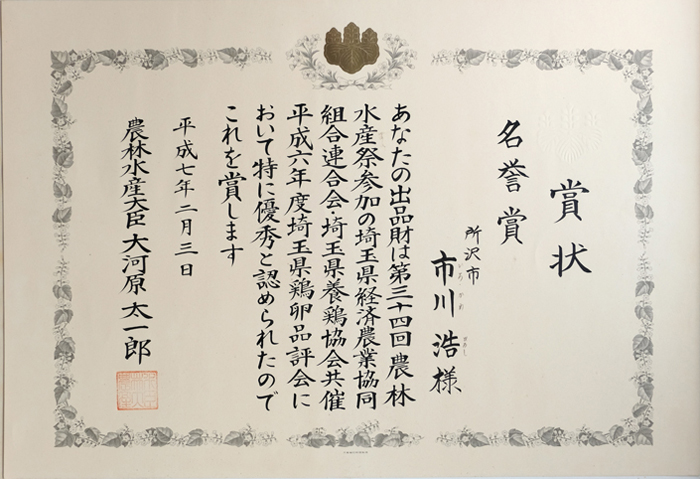 賞状
名誉賞
所沢市
市川浩様
あなたの出品財は第三十四回農林
水産祭参加の埼玉県経済農業協同
組合連合会・埼玉県養鶏協会共催
平成六年度埼玉県鶏卵品評会に
おいて特に優秀と認められたので
これを賞します
平成七年二月三日
農林水産大臣 大河原太一郎